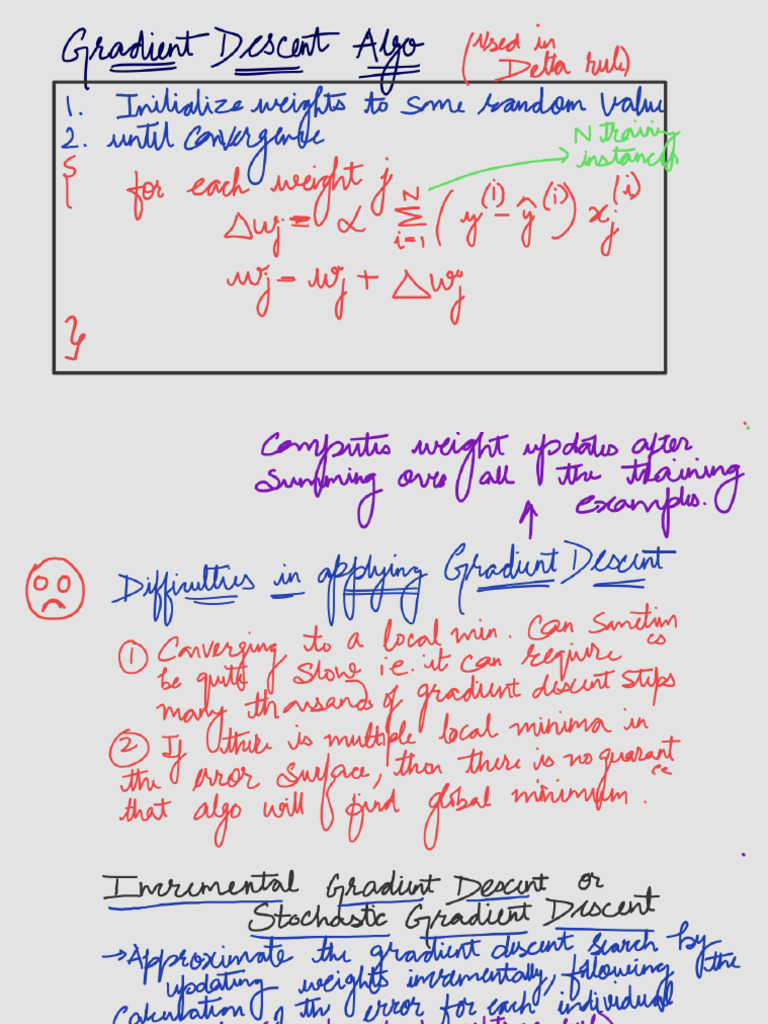 Gradient Descent Algo (Used in
Delta rule)
1. Initialize weights to some random value
2. until convergence
N training
instances
{
for each weight j
Δwj = α Σ_{i=1}^{N} (y^(i) - ŷ^(i)) xj^(i)
wj = wj + Δwj
}
Computes weight updates after
summing over all the training
examples.
↑
Difficulties in applying Gradient Descent
① Converging to a local min. Can sometimes
be quite slow i.e. it can require
many thousands of gradient descent steps
② If there is multiple local minima in
the error surface, then there is no guarantee
that algo will find global minimum.
Incremental Gradient Descent or
Stochastic Gradient Descent
→ Approximate the gradient descent search by
updating weights incrementally, following the
calculation of the error for each individual